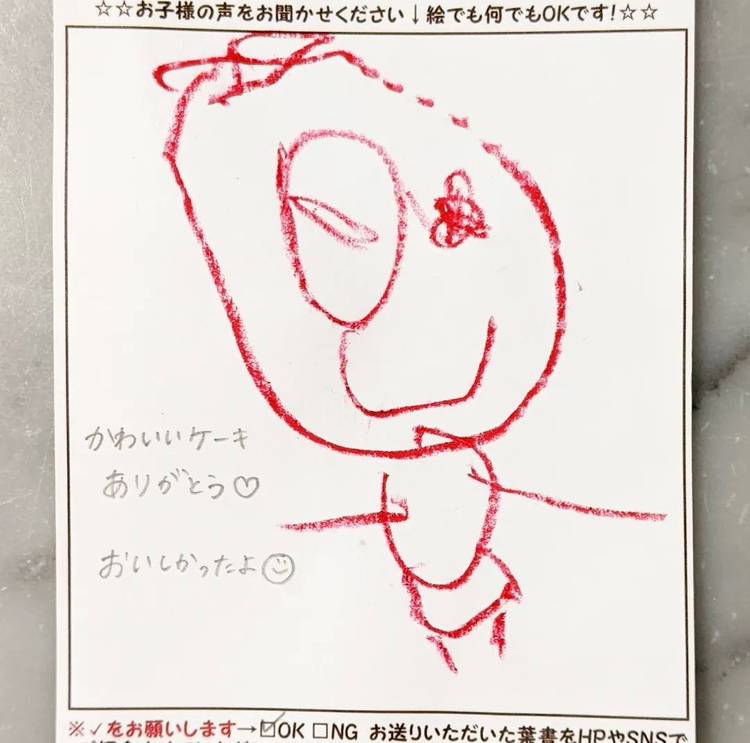 ☆☆お子様の声をお聞かせください↓絵でも何でもOKです!☆☆
かわいいケーキ
ありがとう♡
おいしかったよ☺
※✓をお願いします→☑OK □NG お送りいただいた葉書をHPやSNSで